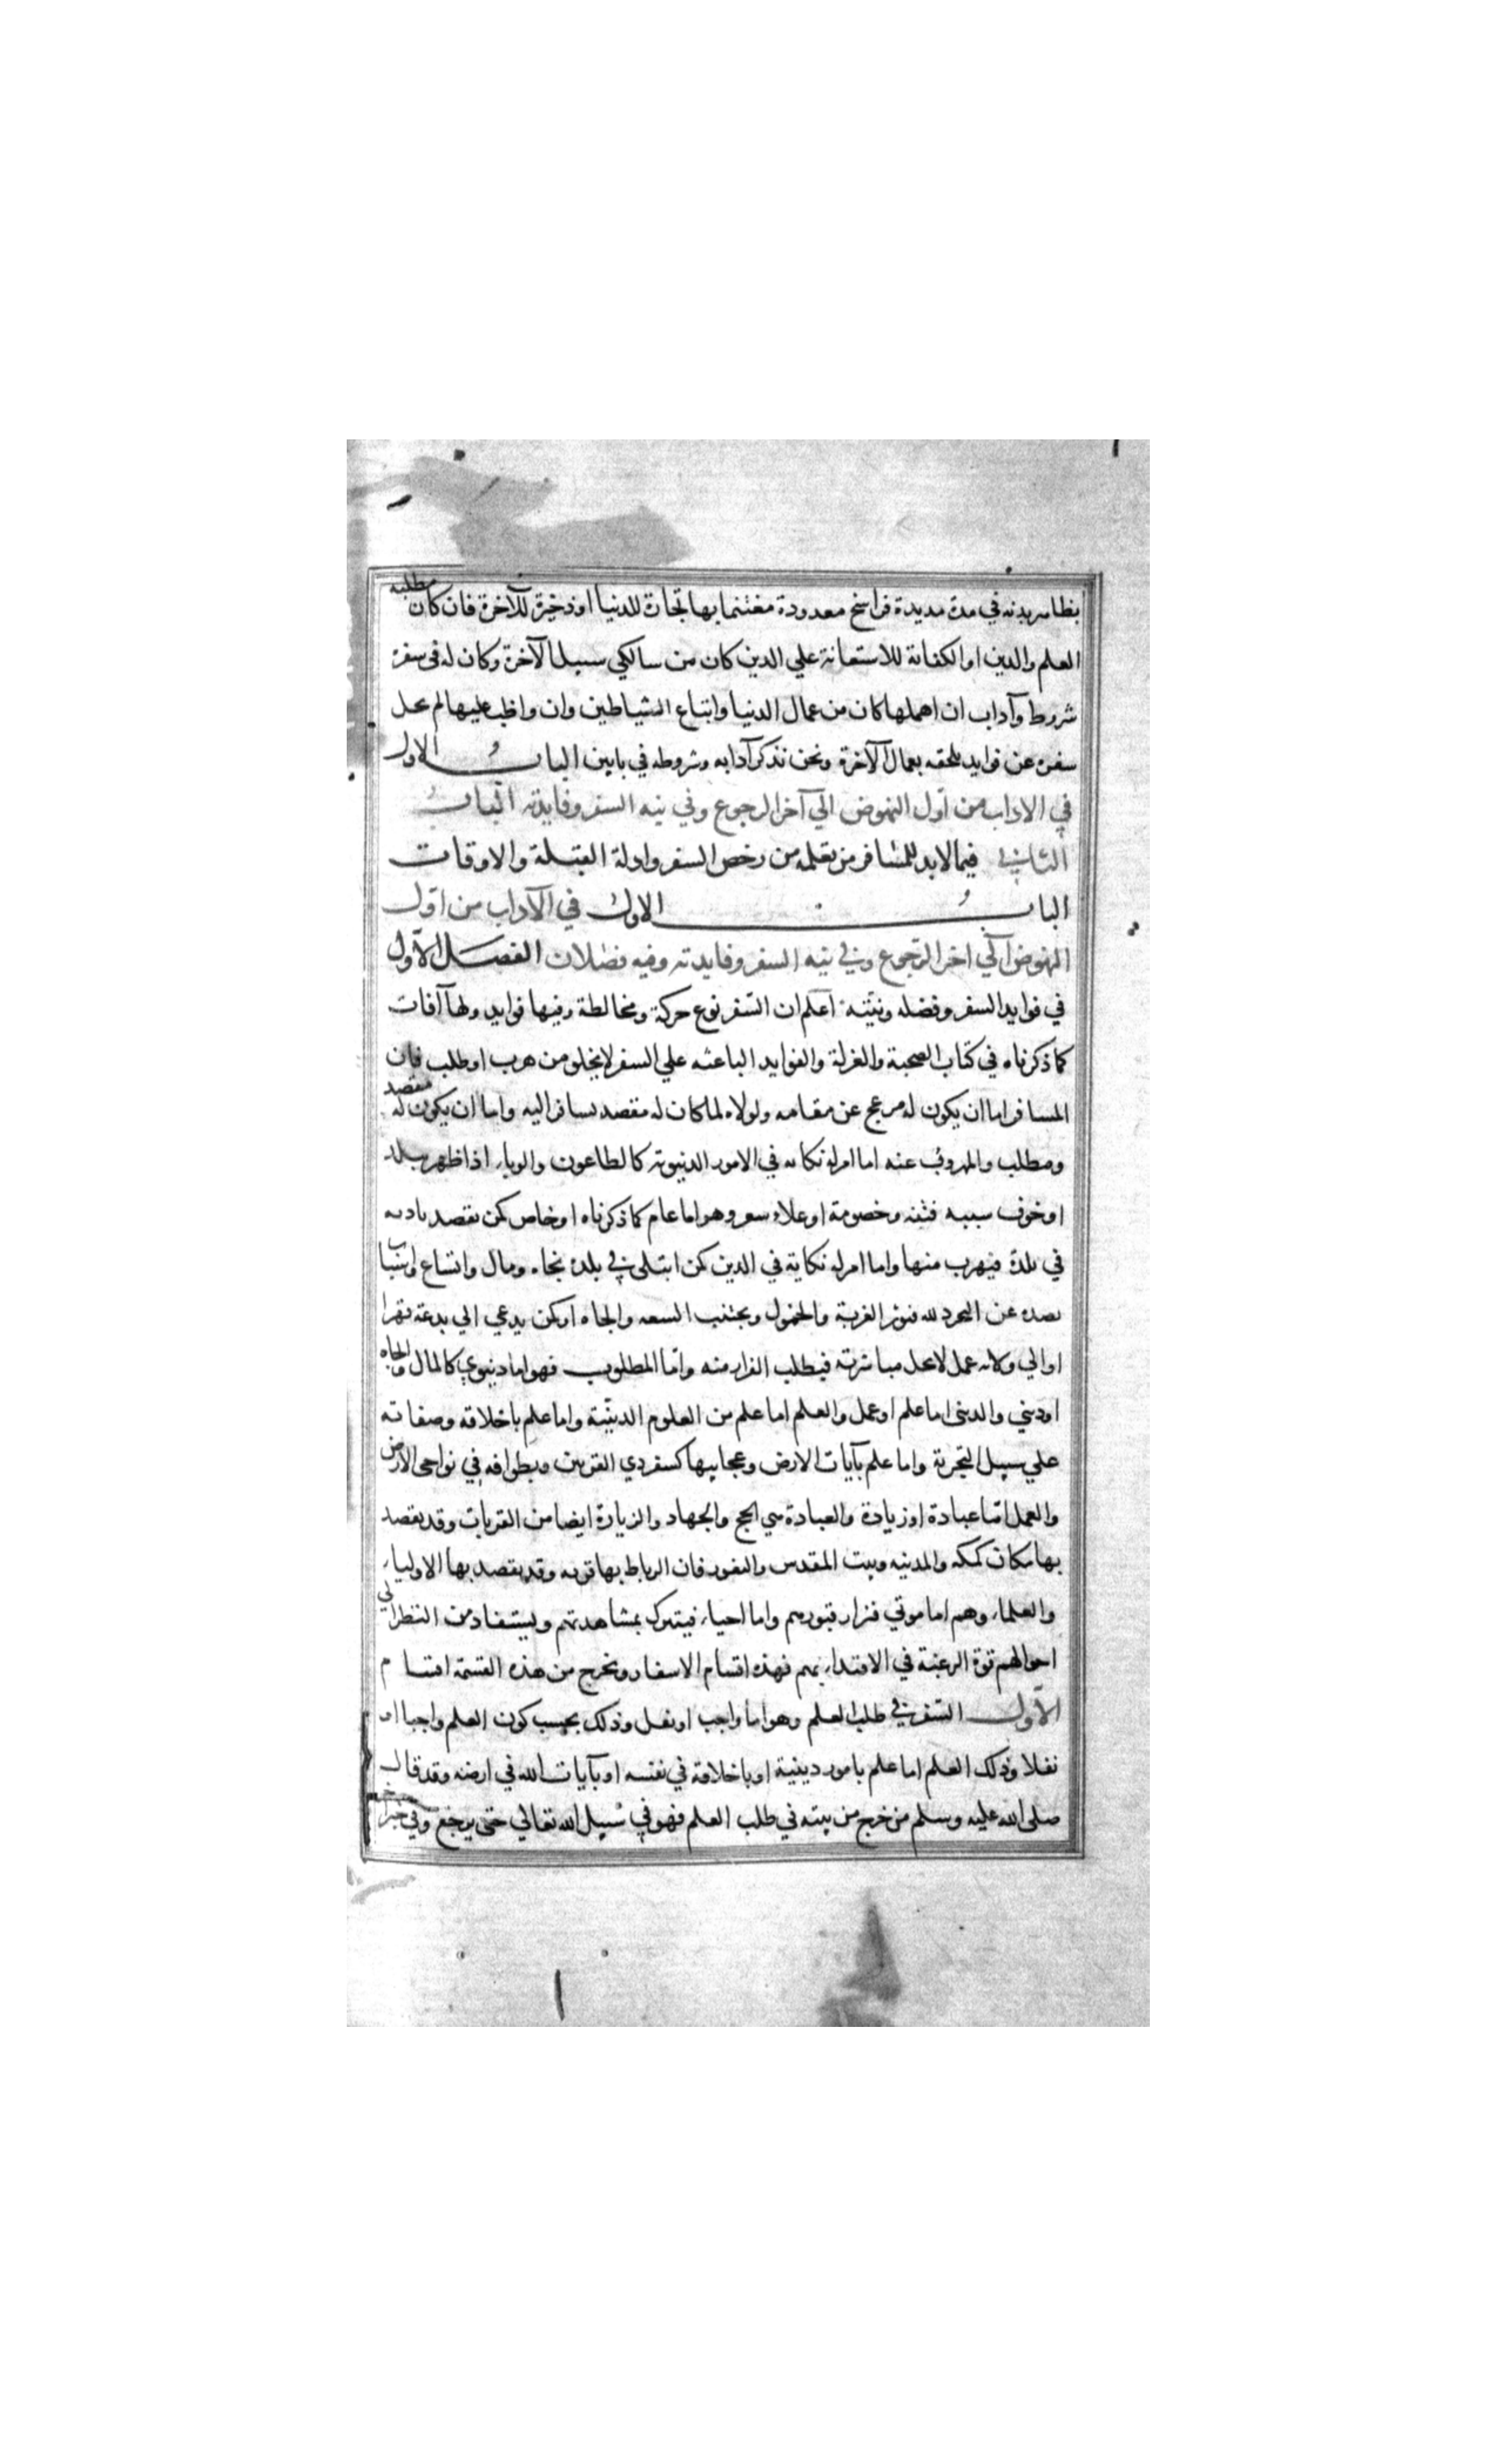 بظاهر بدنه في مدة مديدة فراسخ معدودة مغتنما بها تجارة للدنيا او ذخيرة للآخرة فان كان مطلبه
العلم والدين او الكفاية للاستعانة علي الدين كان من سالكي سبيل الآخرة وكان له في سفره
شروط وآداب ان اهملها كان من عمال الدنيا واتباع الشياطين وان واظب عليها لم يخل
سفره عن فوايد يلحقه بعمال الآخرة ونحن نذكر آدابه وشروطه في بابين الباب الاول
في الاداب من اول النهوض الي آخر الرجوع وفي نيه السفر وفايدته الباب
الثاني فيما لابد للمسافر من تعلمه من رخص السفر وادلة القبلة والاوقات
الباب الاول في الآداب من اول
النهوض الي اخر الرجوع وفي نيه السفر وفايدته وفيه فصلان الفصل الاول
في فوايد السفر وفضله ونيته اعلم ان السفر نوع حركة ومخالطة وفيها فوايد ولها آفات
كما ذكرناه في كتاب الصحبة والعزلة والفوايد الباعثه علي السفر لا يخلو من هرب او طلب فان
المسافر اما ان يكون له مزعج عن مقامه ولولاه لما كان له مقصد يسافر اليه واما ان يكون له مقصد
ومطلب والمهروب عنه اما امر له نكاية في الامور الدنيوية كالطاعون والوباء اذا ظهر ببلد
او خوف سببه فتنه وخصومة او غلاء سعر وهو اما عام كما ذكرناه او خاص كمن يقصد باذيه
في بلدة فيهرب منها واما امر له نكاية في الدين كمن ابتلي في بلده بجاه ومال واتساع اسباب
يصده عن التجرد لله فيؤثر الغربة والخمول ويجتنب السعه والجاه او كمن يدعي الي بدعة قهرا
او الي ولايه عمل لا يحل مباشرته فيطلب الفرار منه واما المطلوب فهو اما دنيوي كالمال والجاه
او ديني والديني اما علم او عمل والعلم اما علم من العلوم الدينية واما علم باخلاقه وصفاته
علي سبيل التجربة واما علم بآيات الارض وعجايبها كسفر ذي القرنين وبطوافه في نواحي الارض
والعمل اما عبادة او زيادة والعبادة هي الحج والجهاد والزيارة ايضا من القربات وقد يقصد
بها مكان كمكه والمدينه وبيت المقدس والثغور فان الرباط بها قربه وقد يقصد بها الاولياء
والعلماء وهم اما موتي فتزار قبورهم واما احياء فيتبرك بمشاهدتهم ويستفاد من النظر الي
احوالهم قوة الرغبة في الاقتداء بهم فهذه اقسام الاسفار ويخرج من هذه القسمة اقسام
الاول السفر في طلب العلم وهو اما واجب او نفل وذلك بحسب كون العلم واجبا او
نفلا وذلك العلم اما علم بامور دينية او باخلاقه في نفسه او بآيات الله في ارضه وقد قال
صلى الله عليه وسلم من خرج من بيته في طلب العلم فهو في سبيل الله تعالي حتى يرجع وفي خبر